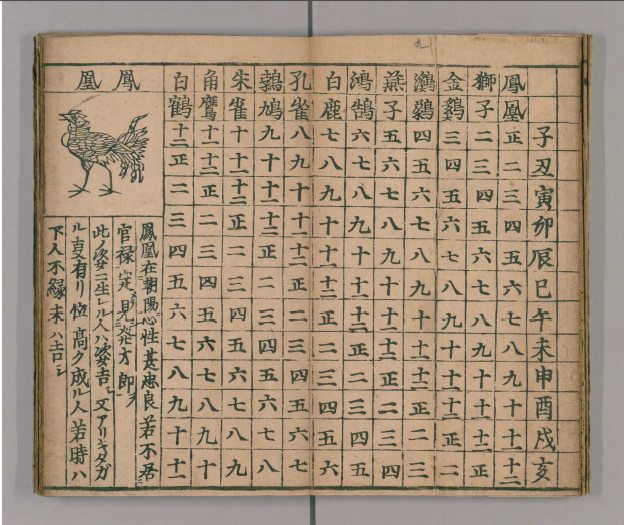 子丑寅卯辰巳午未申酉戌亥
鳳凰正二三四五六七八九十十一十二
獅子二三四五六七八九十十一十二正
金鷄三四五六七八九十十一十二正二
鸂四五六七八九十十一十二正二三
燕子五六七八九十十一十二正二三四
鴻鵠六七八九十十一十二正二三四五
白鹿七八九十十一十二正二三四五六
孔雀八九十十一十二正二三四五六七
鳩九十十一十二正二三四五六七八
朱雀十十一十二正二三四五六七八九
角鷹十一十二正二三四五六七八九十
白鶴十二正二三四五六七八九十十一
鳳凰
鳳凰在朝陽心性甚忠良若不居
官禄定見発才郎
此ノ姿ニ生レル人ハ姿吉シ又アリキタガ
ル叓有リ位高ク成ル人若時ハ
下人不縁末ハ吉シ